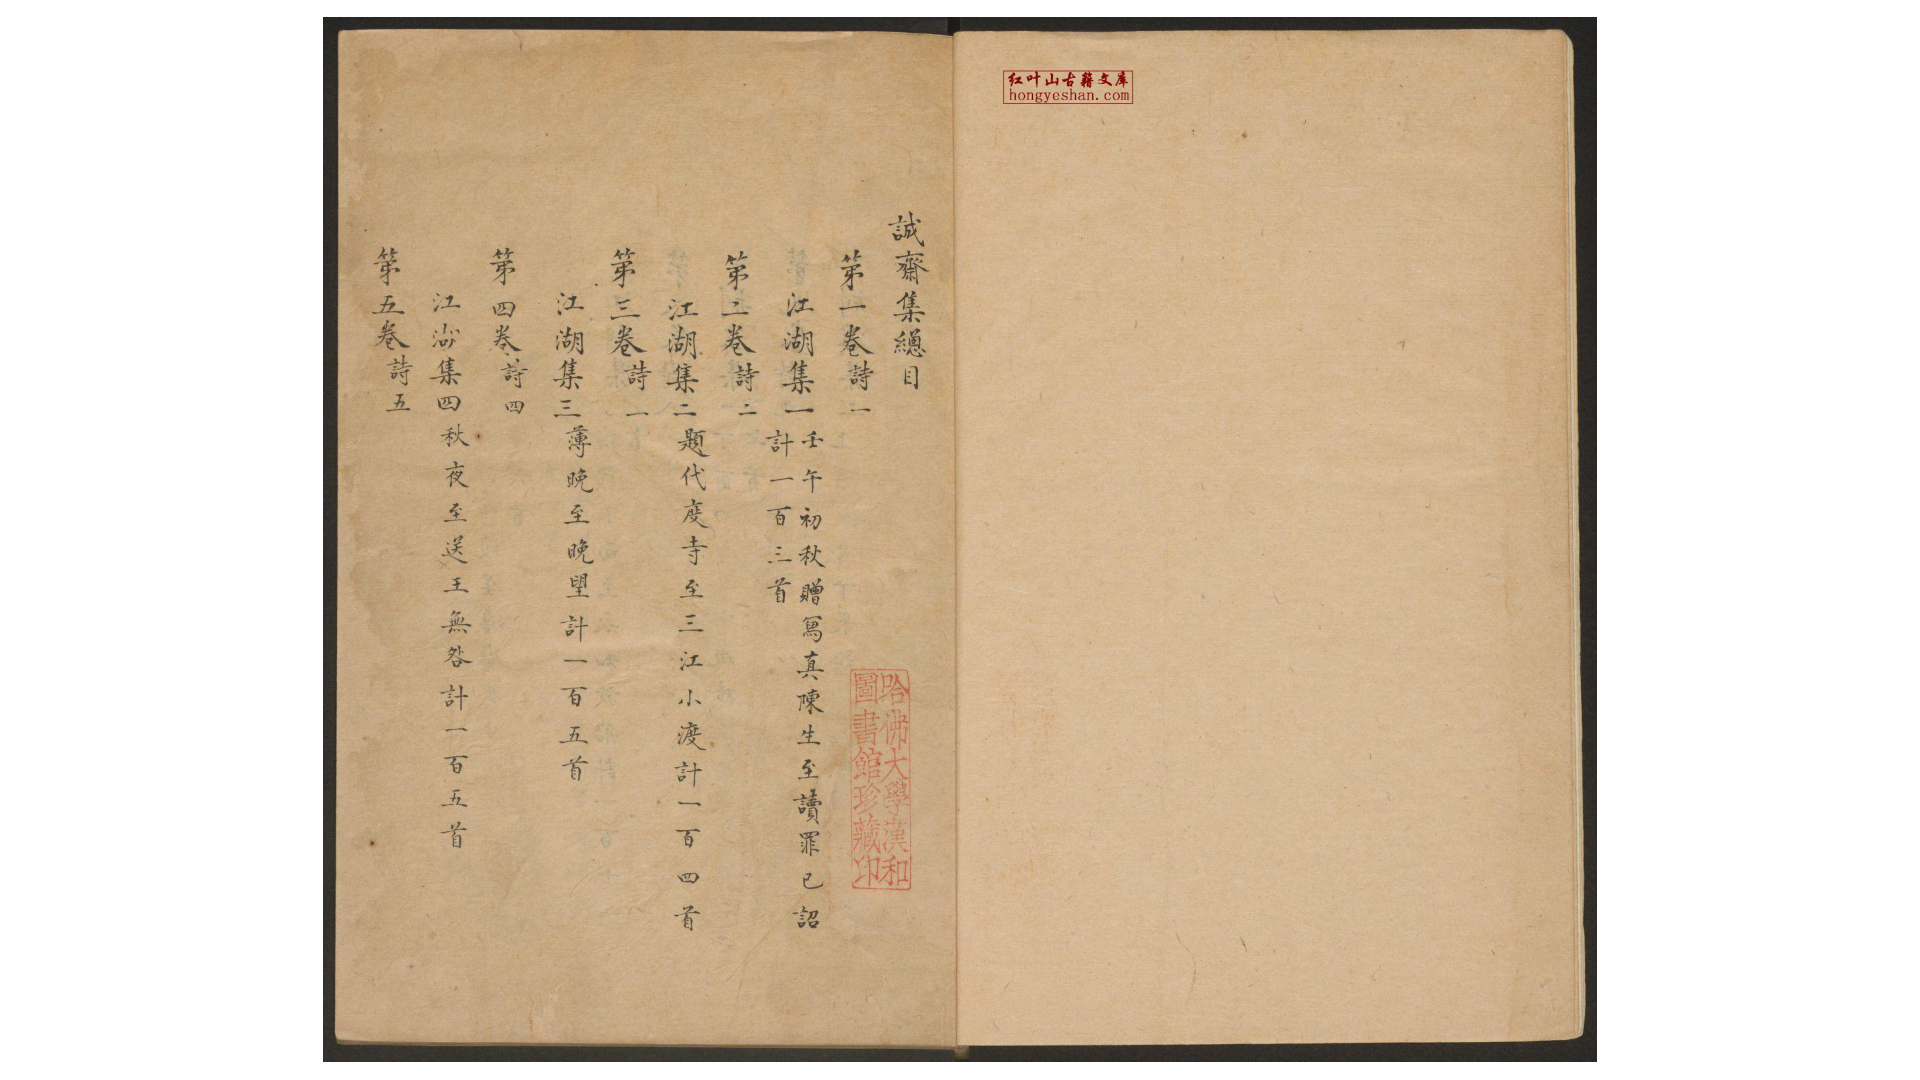 红叶山古籍文库
hongyeshan.com
誠齋集總目
第一卷詩一
江湖集一壬午初秋贈寫真陳生至讀罪已詔
計一百三首
第二卷詩二
江湖集二題代度寺至三江小渡計一百四首
第三卷詩一
江湖集三薄晚至晚望計一百五首
第四卷詩四
江湖集四秋夜至送王無咎計一百五首
第五卷詩五
哈佛大學漢和
圖書館珍藏印